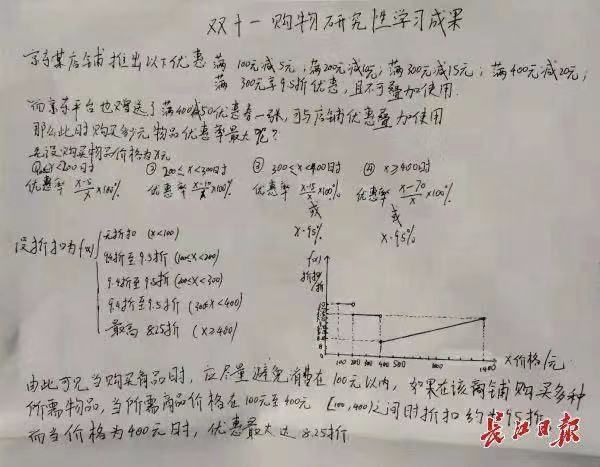 双十一购物研究性学习成果
京东某店铺推出以下优惠 满100元减5元；满200元减10元；满300元减15元；满400元减20元；
满300元享9.5折优惠，且不可叠加使用.
而京东平台也赠送了满400减50优惠券一张，可与店铺优惠叠加使用
那么此时购买多少元物品优惠率最大呢？
先设购买物品价格为x元
x<200时 ② 200≤x<300时 ③ 300≤x<400时 ④ x≥400时
优惠率 x-5/x ×100% 优惠率 x-10/x ×100% 优惠率 x-15/x ×100% 优惠率 x-70/x ×100%
或 或
x·95% x·95%
设折扣为f(x)
无折扣 (x<100)
至9.5折 (100≤x<200)
9.5折 (200≤x<300)
至9.5折 (300≤x<400)
最高 8.25折 (x≥400)
f(x)
折扣/折
100 200 300 400 500 1000 1400 x价格/元
由此可见当购买商品时，应尽量避免消费在100元以内，如果在该商铺购买多种
所需物品，当所需商品价格在100元至400元 [100,400)之间时折扣约为95折
而当价格为400元时，优惠最大达8.25折
长江日报